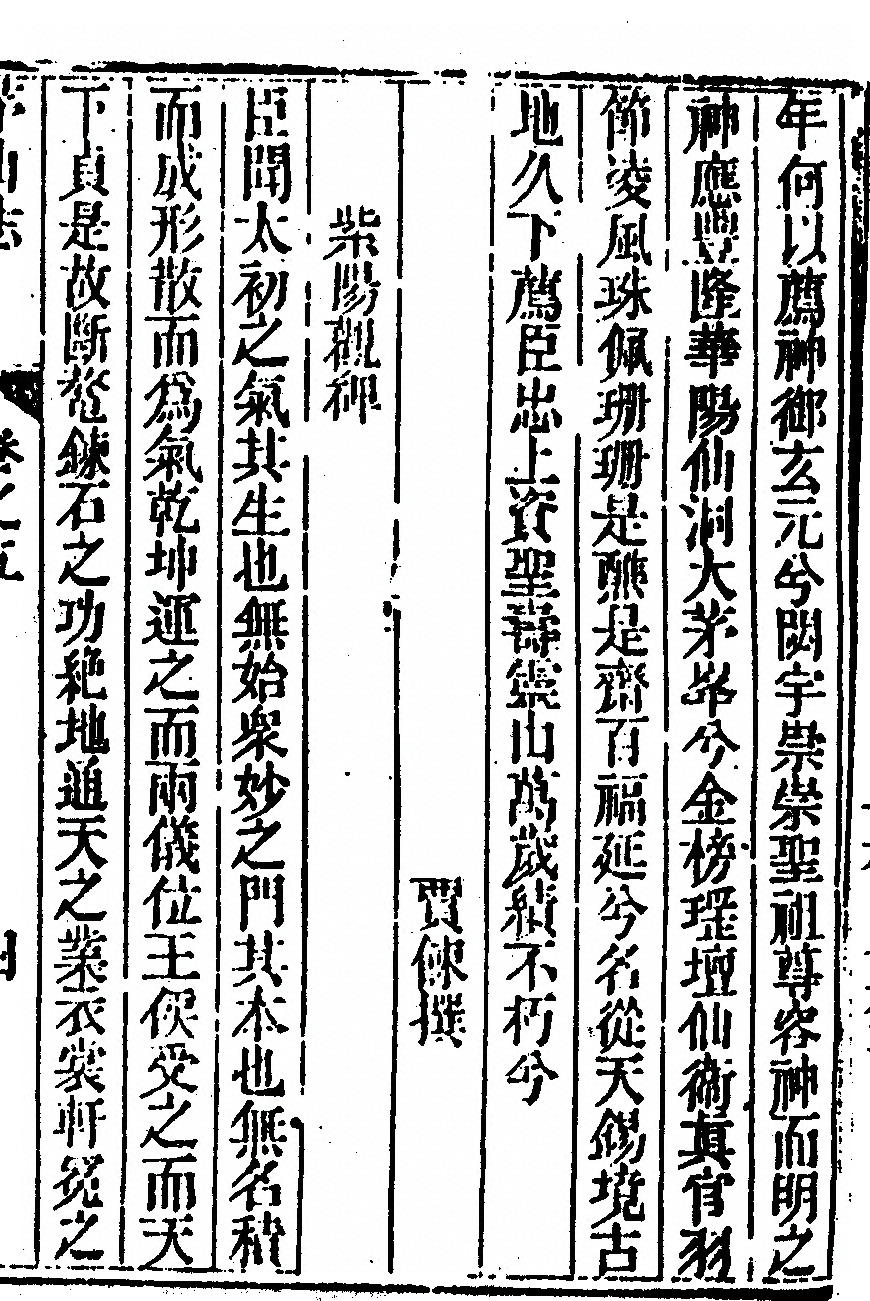 年何以薦神御玄元兮閟宇崇崇聖祖尊容神而明之
神應豐隆華陽仙洞大茅峁兮金榜瑶壇仙衛真官羽
節凌風珠佩珊珊是醮是齋百福延兮名從天錫境古
地久下薦臣忠上資聖壽崇山萬歲績不朽兮
賈餗撰
紫陽觀碑
臣聞太初之氣其生也無始衆妙之門其本也無名積
而成形散而為氣乾坤運之而兩儀位王侯受之而天
下貞是故斷鼇鍊石之功絶地通天之業衣裳軒冕之
茅山志 卷之五